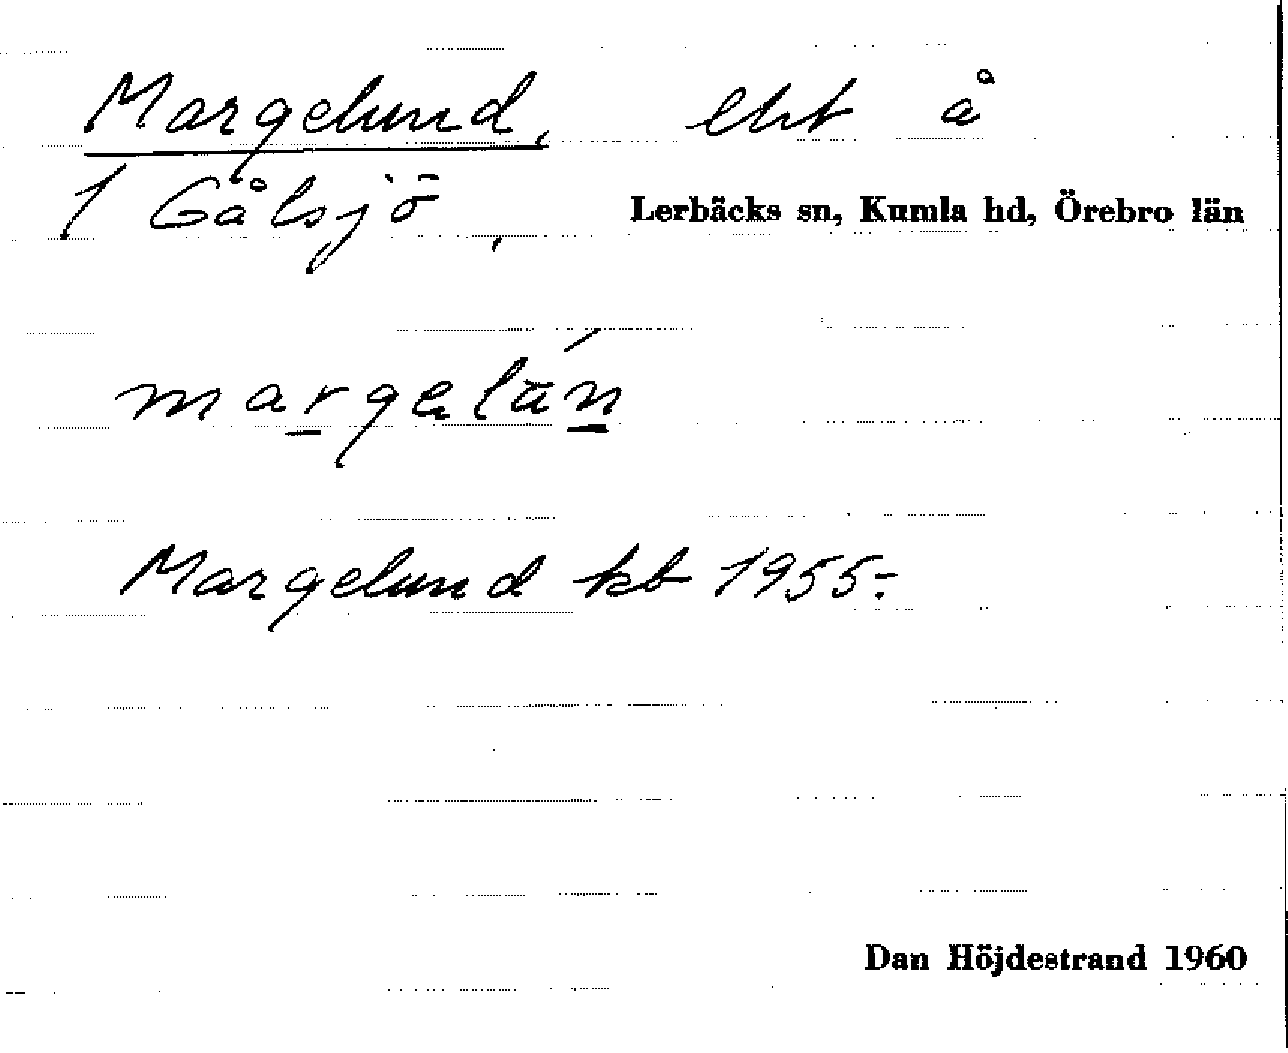 Margelund, lht å
1 Gålsjö, Lerbäcks sn, Kumla hd, Örebro län
margelún
Margelund kb 1955-
Dan Höjdestrand 1960